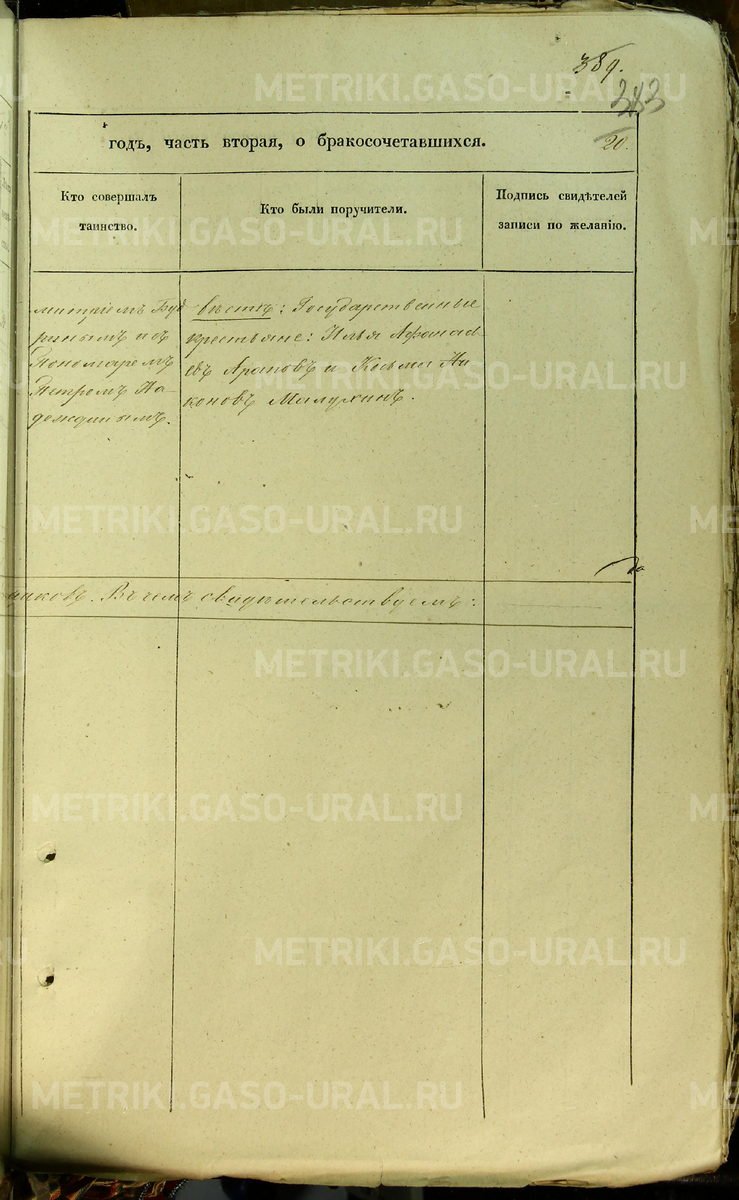 389.
383
20.
годъ, часть вторая, о бракосочетавшихся.
Кто совершалъ
таинство.
Кто были поручители.
Подпись свидѣтелей
записи по желанію.
митріемъ
и съ
Пономаремъ
Петромъ На-
деждинымъ.
Государственные
крестьяне: Илья Афанась-
евъ Араповъ и Козьма Ни-
коновъ Милухинъ.
Въ чемъ свидѣтельствуемъ:
METRIKI.GASO-URAL.RU